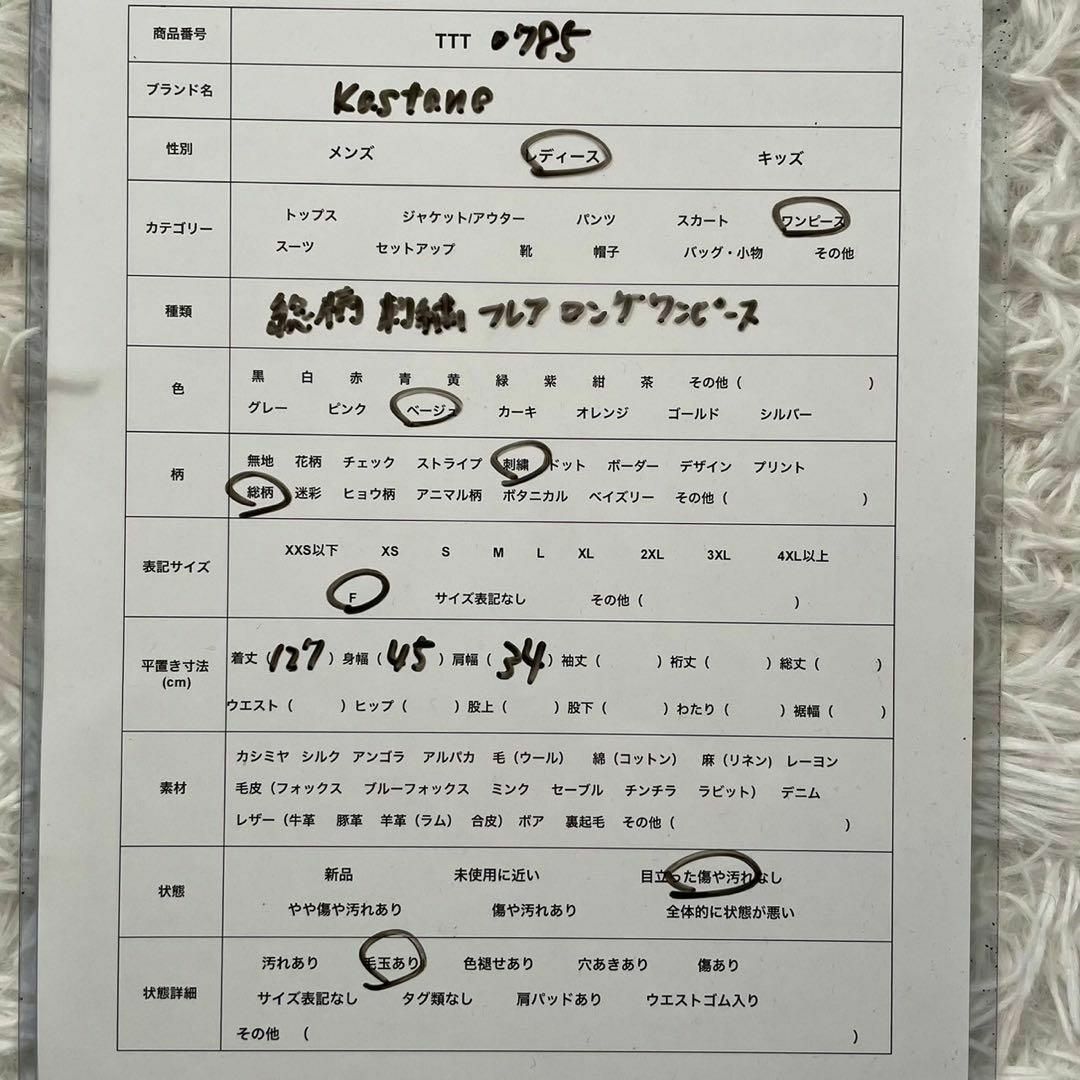 商品番号 TTT 0785
ブランド名 Kastane
性別 メンズ レディース キッズ
カテゴリー トップス ジャケット/アウター パンツ スカート ワンピース
スーツ セットアップ 靴 帽子 バッグ・小物 その他
種類 総柄 刺繍 フレア ロングワンピース
色 黒 白 赤 青 黄 緑 紫 紺 茶 その他（ ）
グレー ピンク ベージュ カーキ オレンジ ゴールド シルバー
柄 無地 花柄 チェック ストライプ 刺繍 ドット ボーダー デザイン プリント
総柄 迷彩 ヒョウ柄 アニマル柄 ボタニカル ベイズリー その他（ ）
表記サイズ XXS以下 XS S M L XL 2XL 3XL 4XL以上
F サイズ表記なし その他（ ）
平置き寸法 (cm) 着丈（127）身幅（45）肩幅（34）袖丈（ ）裄丈（ ）総丈（ ）
ウエスト（ ）ヒップ（ ）股上（ ）股下（ ）わたり（ ）裾幅（ ）
素材 カシミヤ シルク アンゴラ アルパカ 毛（ウール） 綿（コットン） 麻（リネン） レーヨン
毛皮（フォックス ブルーフォックス ミンク セーブル チンチラ ラビット） デニム
レザー（牛革 豚革 羊革（ラム） 合皮） ボア 裏起毛 その他（ ）
状態 新品 未使用に近い 目立った傷や汚れなし
やや傷や汚れあり 傷や汚れあり 全体的に状態が悪い
状態詳細 汚れあり 毛玉あり 色褪せあり 穴あきあり 傷あり
サイズ表記なし タグ類なし 肩パッドあり ウエストゴム入り
その他 （ ）